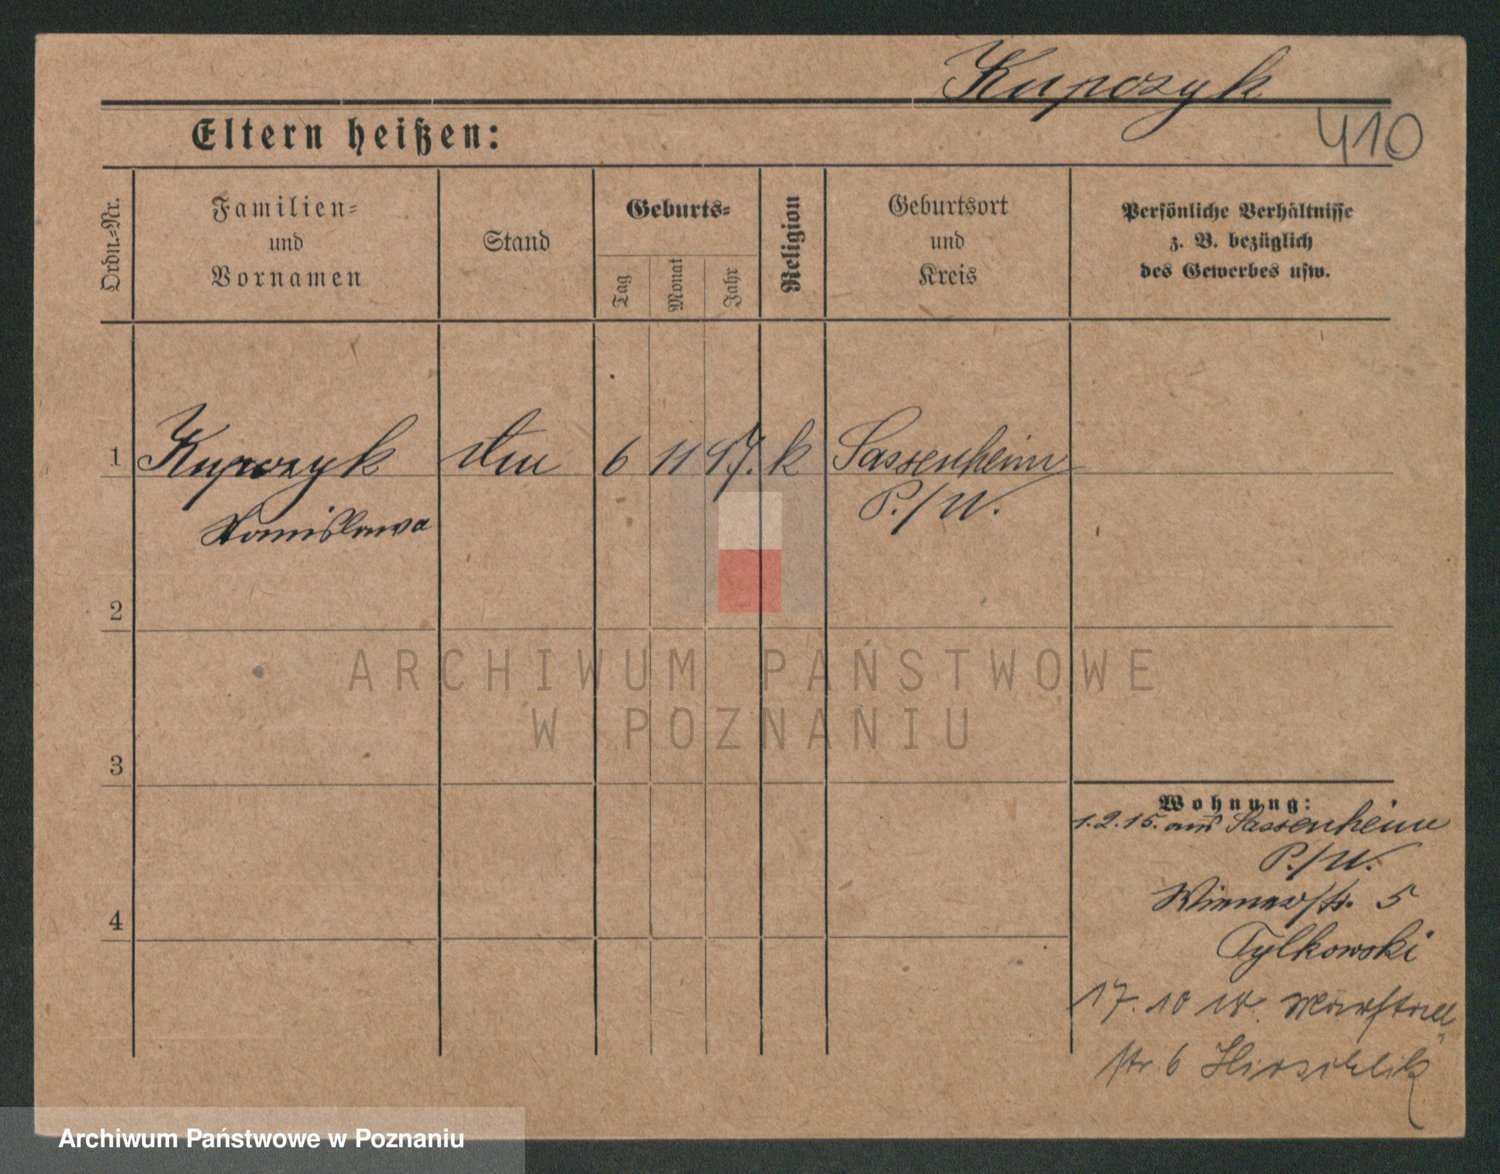 Kupczyk
410
Eltern heißen:
Ordn.-Nr.
Familien-
und
Vornamen
Stand
Geburts-
Tag
Monat
Jahr
Religion
Geburtsort
und
Kreis
Persönliche Verhältnisse
z. B. bezüglich
des Gewerbes usw.
1 Kupczyk 6 11 97. k Sassenheim
Stanislawa P./W.
2
ARCHIWUM PAŃSTWOWE
W POZNANIU
3
Wohnung:
1.2.15. aus Sassenheim
P./W.
4
Wienerstr. 5
Tylkowski
17. 10 18. Marstall
str. 6
Archiwum Państwowe w Poznaniu